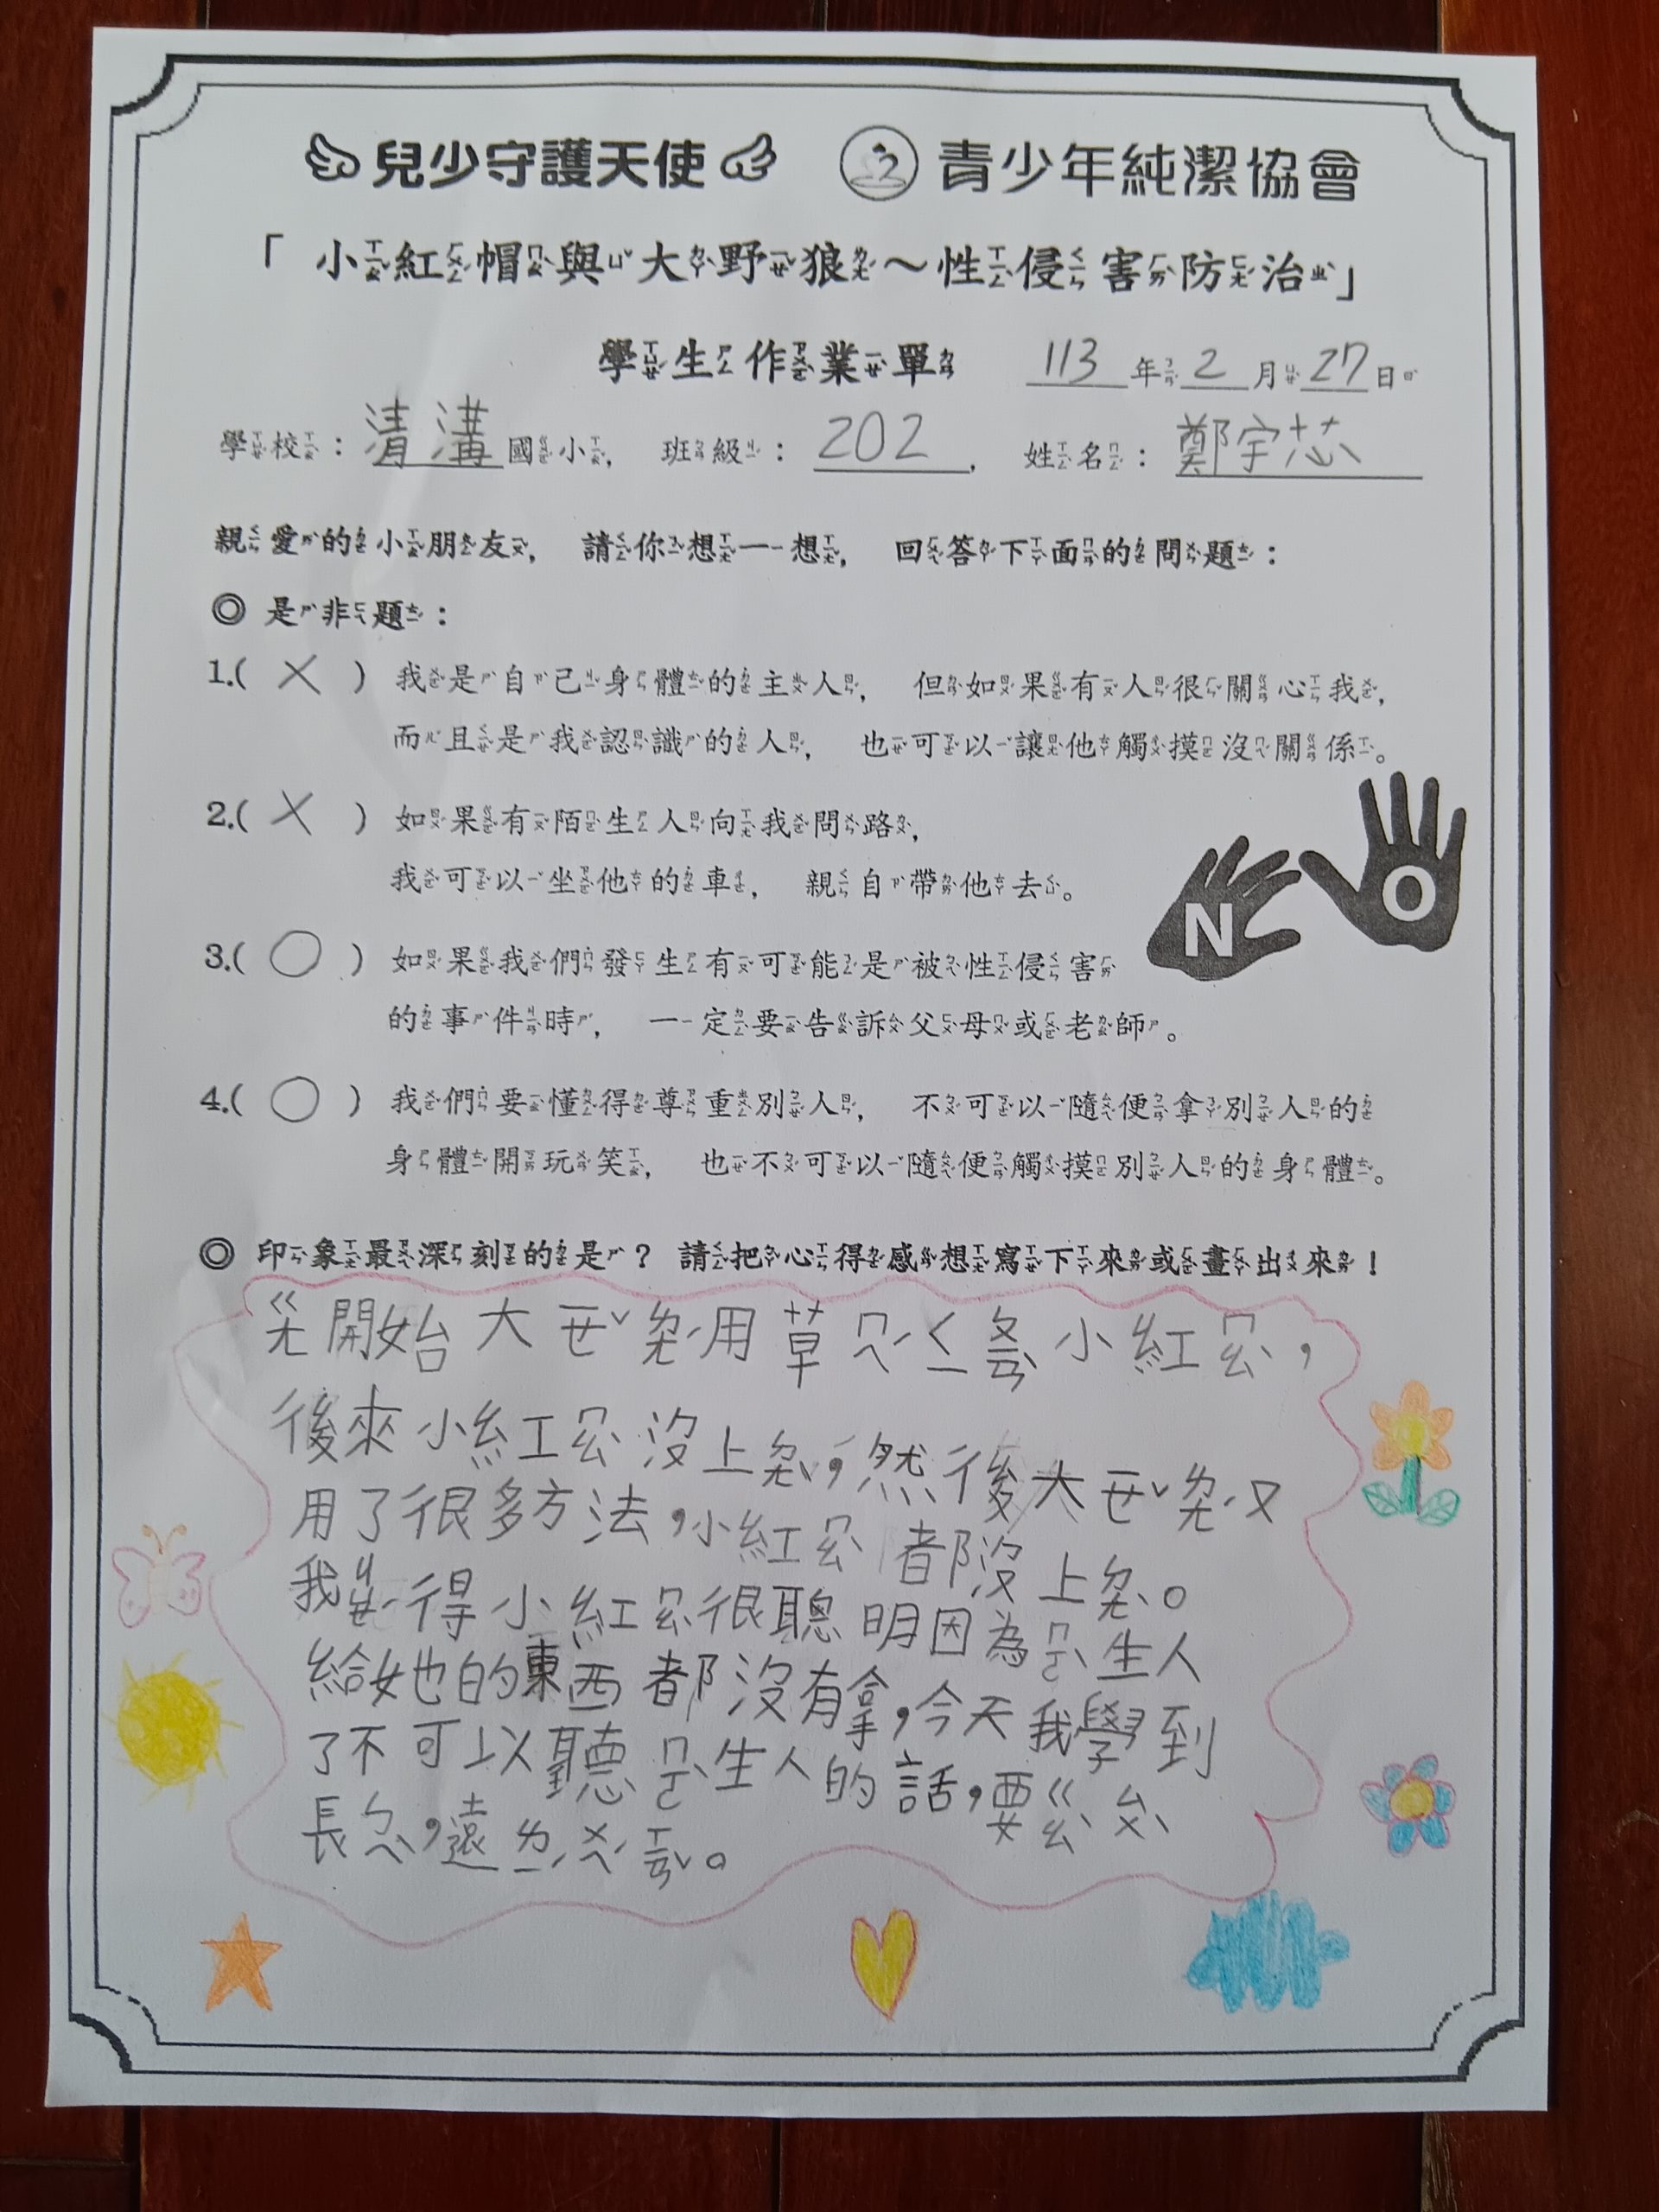 兒少守護天使 青少年純潔協會
「小紅帽與大野狼～性侵害防治」
學生作業單 113年2月27日
學校：清溝國小， 班級：202， 姓名：鄭宇芯
親愛的小朋友， 請你想一想， 回答下面的問題：
◎ 是非題：
1.( X ) 我是自己身體的主人， 但如果有人很關心我，
而且是我認識的人， 也可以讓他觸摸沒關係。
2.( X ) 如果有陌生人向我問路，
我可以坐他的車， 親自帶他去。
NO
3.( ○ ) 如果我們發生有可能是被性侵害
的事件時， 一定要告訴父母或老師。
4.( ○ ) 我們要懂得尊重別人， 不可以隨便拿別人的
身體開玩笑， 也不可以隨便觸摸別人的身體。
◎ 印象最深刻的是？ 請把心得感想寫下來或畫出來！
ㄍㄤ開始大ㄧㄝˇㄌㄤˊ用草ㄇㄟˊㄑㄧˊㄆㄧㄢˋ小紅ㄇㄠˋ，
後來小紅ㄇㄠˋ沒上ㄉㄤˋ，然後大ㄧㄝˇㄌㄤˊ又
用了很多方法，小紅ㄇㄠˋ都沒上ㄉㄤˋ。
我ㄐㄩㄝˊ得小紅ㄇㄠˋ很聰明因為ㄇㄛˋ生人
給她的東西都沒有拿，今天我學到
了不可以聽ㄇㄛˋ生人的話，要ㄍㄠˋㄙㄨˋ
長ㄅㄟˋ，遠ㄌㄧˊㄨㄟˊㄒㄧㄢˇ。